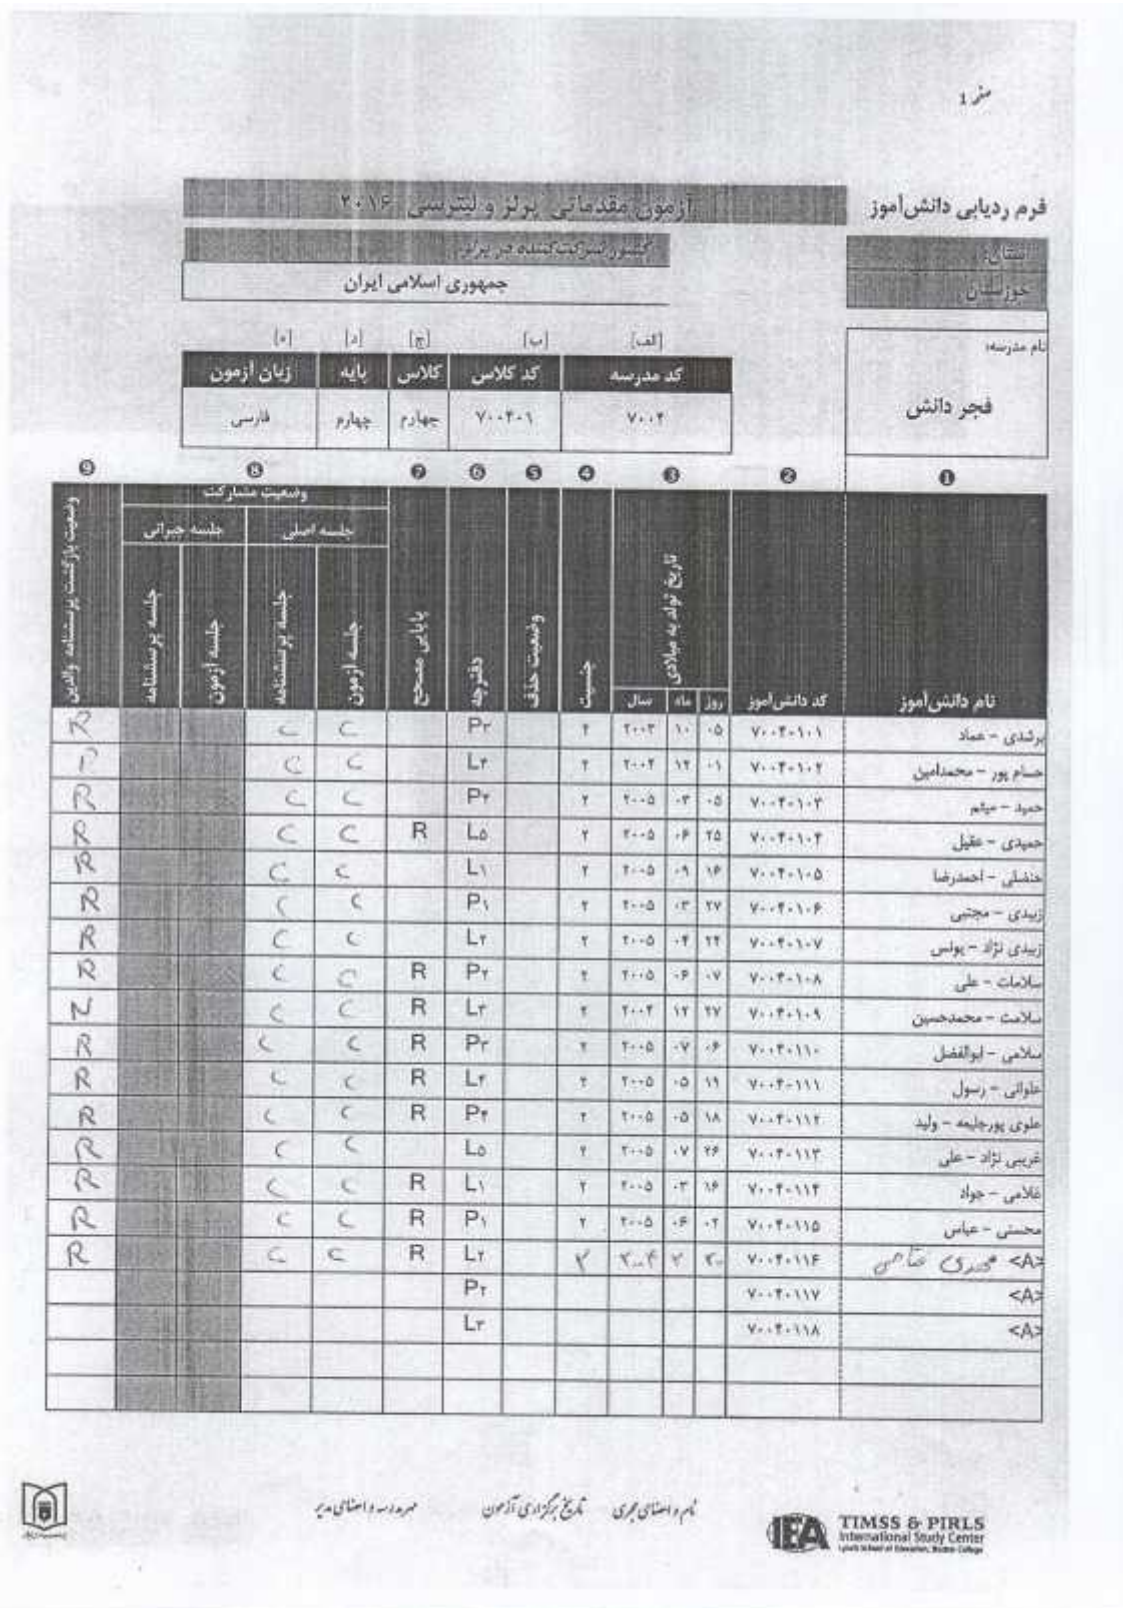 صفر 1
فرم ردیابی دانش‌آموز
آزمون مقدماتی پرلز و لیترسی ۲۰۱۶
استان:
کشور شرکت‌کننده در پرلز
خوزستان
جمهوری اسلامی ایران
نام مدرسه:
فجر دانش
[الف] [ب] [ج] [د] [ه]
کد مدرسه کد کلاس کلاس پایه زبان آزمون
۷۰۰۴ ۷۰۰۴۰۱ چهارم چهارم فارسی
❶ ❷ ❸ ❹ ❺ ❻ ❼ ❽ ❾
نام دانش‌آموز کد دانش‌آموز تاریخ تولد به میلادی روز ماه سال جنسیت وضعیت حذف دفترچه پایایی مصحح وضعیت مشارکت جلسه اصلی جلسه جبرانی جلسه آزمون جلسه پرسشنامه جلسه آزمون جلسه پرسشنامه وضعیت بازگشت پرسشنامه والدین
برشدی - عماد ۷۰۰۴۰۱۰۱ ۰۵ ۱۰ ۲۰۰۳ ۲ P۳ C C R
حسام پور - محمدامین ۷۰۰۴۰۱۰۲ ۰۱ ۱۲ ۲۰۰۴ ۲ L۴ C C
حمید - میثم ۷۰۰۴۰۱۰۳ ۰۵ ۰۳ ۲۰۰۵ ۲ C C R
حمیدی - عقیل ۷۰۰۴۰۱۰۴ ۲۵ ۰۶ ۲۰۰۵ ۲ L۵ R C C R
حنضلی - احمدرضا ۷۰۰۴۰۱۰۵ ۱۶ ۰۹ ۲۰۰۵ ۲ L۱ C C R
زبیدی - مجتبی ۷۰۰۴۰۱۰۶ ۲۷ ۰۳ ۲۰۰۵ ۲ P۱ C C R
زبیدی نژاد - یونس ۷۰۰۴۰۱۰۷ ۲۲ ۰۴ ۲۰۰۵ ۲ L۲ C C R
سلامات - علی ۷۰۰۴۰۱۰۸ ۰۷ ۰۶ ۲۰۰۵ ۲ P۲ R C C R
سلامت - محمدحسین ۷۰۰۴۰۱۰۹ ۲۷ ۱۲ ۲۰۰۴ ۲ L۳ R C C N
سلامی - ابوالفضل ۷۰۰۴۰۱۱۰ ۰۶ ۰۷ ۲۰۰۵ ۲ P۳ R C C R
علوانی - رسول ۷۰۰۴۰۱۱۱ ۱۹ ۰۵ ۲۰۰۵ ۲ L۴ R C C R
علوی پورجلیعه - ولید ۷۰۰۴۰۱۱۲ ۱۸ ۰۵ ۲۰۰۵ ۲ P۴ R C C R
غریبی نژاد - علی ۷۰۰۴۰۱۱۳ ۲۶ ۰۷ ۲۰۰۵ ۲ L۵ C C R
غلامی - جواد ۷۰۰۴۰۱۱۴ ۱۶ ۰۳ ۲۰۰۵ ۲ L۱ R C C R
محسنی - عباس ۷۰۰۴۰۱۱۵ ۰۲ ۰۶ ۲۰۰۵ ۲ P۱ R C C R
<A> ۷۰۰۴۰۱۱۶ ۲ ۲۰۰۴ ۲ L۲ R C C R
<A> ۷۰۰۴۰۱۱۷ P۲
<A> ۷۰۰۴۰۱۱۸ L۳
نام و امضای مجری تاریخ برگزاری آزمون مهر مدرسه و امضای مدیر
IEA TIMSS & PIRLS
International Study Center
Lynch School of Education, Boston College